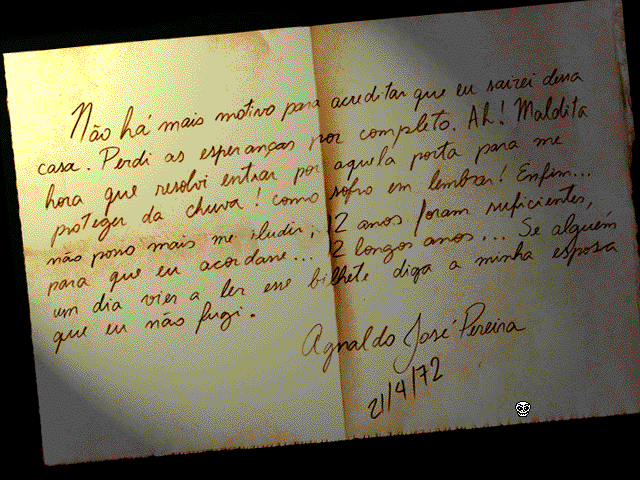 Não há mais motivo para acreditar que eu sairei dessa
casa. Perdi as esperanças por completo. Ah! Maldita
hora que resolvi entrar por aquela porta para me
proteger da chuva! como sofro em lembrar! Enfim...
não posso mais me iludir, 2 anos foram suficientes,
para que eu acordasse... 2 longos anos... Se alguém
um dia vier a ler esse bilhete diga a minha esposa
que eu não fugi.
Agnaldo José Pereira
21/4/72